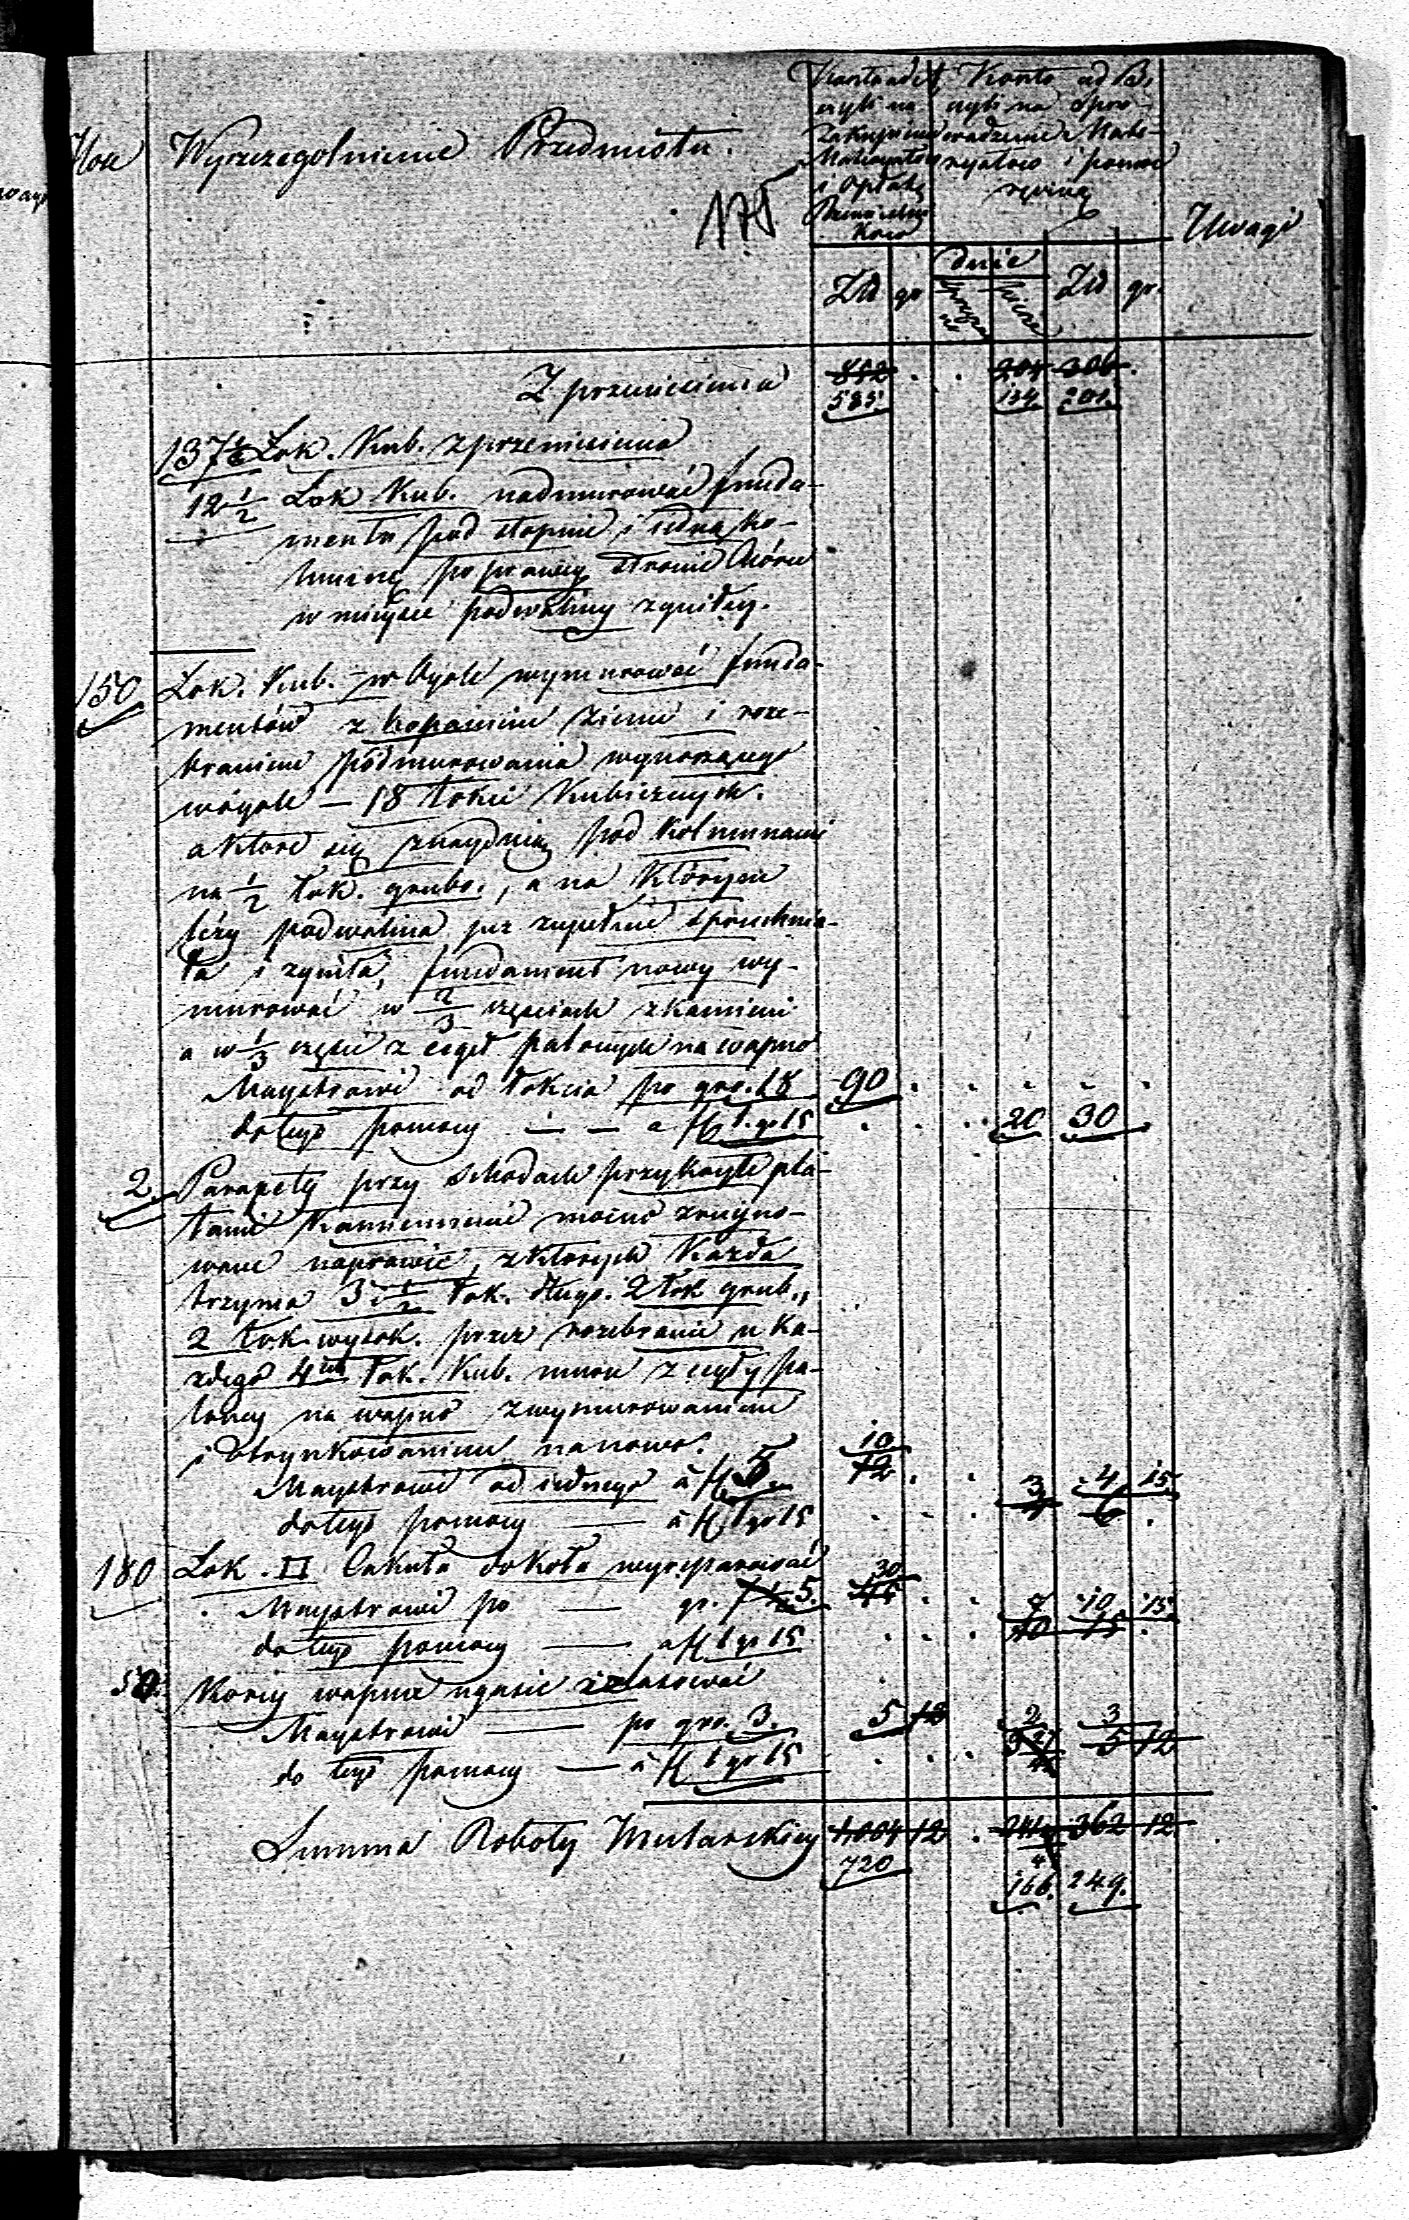 Ilość Wyszczegolnienie Przedmiotu.
175
Konto
czyli na
Zakupienie
Materyałow
i Opłatę
Rzemieślni
kow
Konto
czyli na Spro-
wadzenie Mate-
ryałow i pomoc
ręczną
Uwagi
Zld gr dnie Zld gr.
Z przeniesienia 812 . . 204 306 .
585. 134 201.
137 1/2 Lok. Kub. z przeniesienia
12 1/2 Lok Kub. nadmurować funda-
mentu pod stopnie i iedną ko-
lumnę po prawey stronie Chóru
w mieysce podwaliny zgniłey.
150 Lok. Kub. w Ogole wymurować funda-
mentów z kopaniem ziemi i roze-
braniem podmurowania wynoszącego
wógole — 18 łokci Kubicznych.
a ktore się znayduią pod Kolumnami
na 1/2 łok. grubo., a na Którym
leży podwalina już zupełnie spruchnia-
ła i zgniła, fundament nowy wy-
murować w 2/3 częściach z kamieni
a w 1/3 części z cegeł palonych na wapno
Maystrowi od łokcia po gro. 18 90 . . . . .
do tego pomocy — — a fl 1. gr 15 . . . 20 30 .
2. Parapety przy schodach przykryte pła-
tami Kamiennemi mocno zruyno-
wane naprawić, z ktorych Każda
trzyma 3 i 1/2 łok. długo. 2 łok grub.,
2 łok wysok. przez rozebranie u Ka-
żdego 4ch łok. Kub. muru z cegły pa-
loney na wapno z wymurowaniem
i otynkowaniem nanowo. 10
Maystrowi od iednego á fl 5. 12 . . 3 4 15
do tego pomocy — á fl 1 gr 15 . . . 4 6 .
180 Lok. □ Cokuła dokoła wyreparować 30
Maystrowi po — gr. 7 1/2 5. 45 . . 7 10 15
do tego pomocy — a fl 1 gr 15 . . . 10 15 .
50. Korcy wapna ugasić i zlasować
Maystrowi — po gro. 3. 5 12 2 3
do tego pomocy — á fl 1 gr 15 . . . 5 12
Summa Roboty Mularskiey 1004 12 . 362 12
720 166. 249.